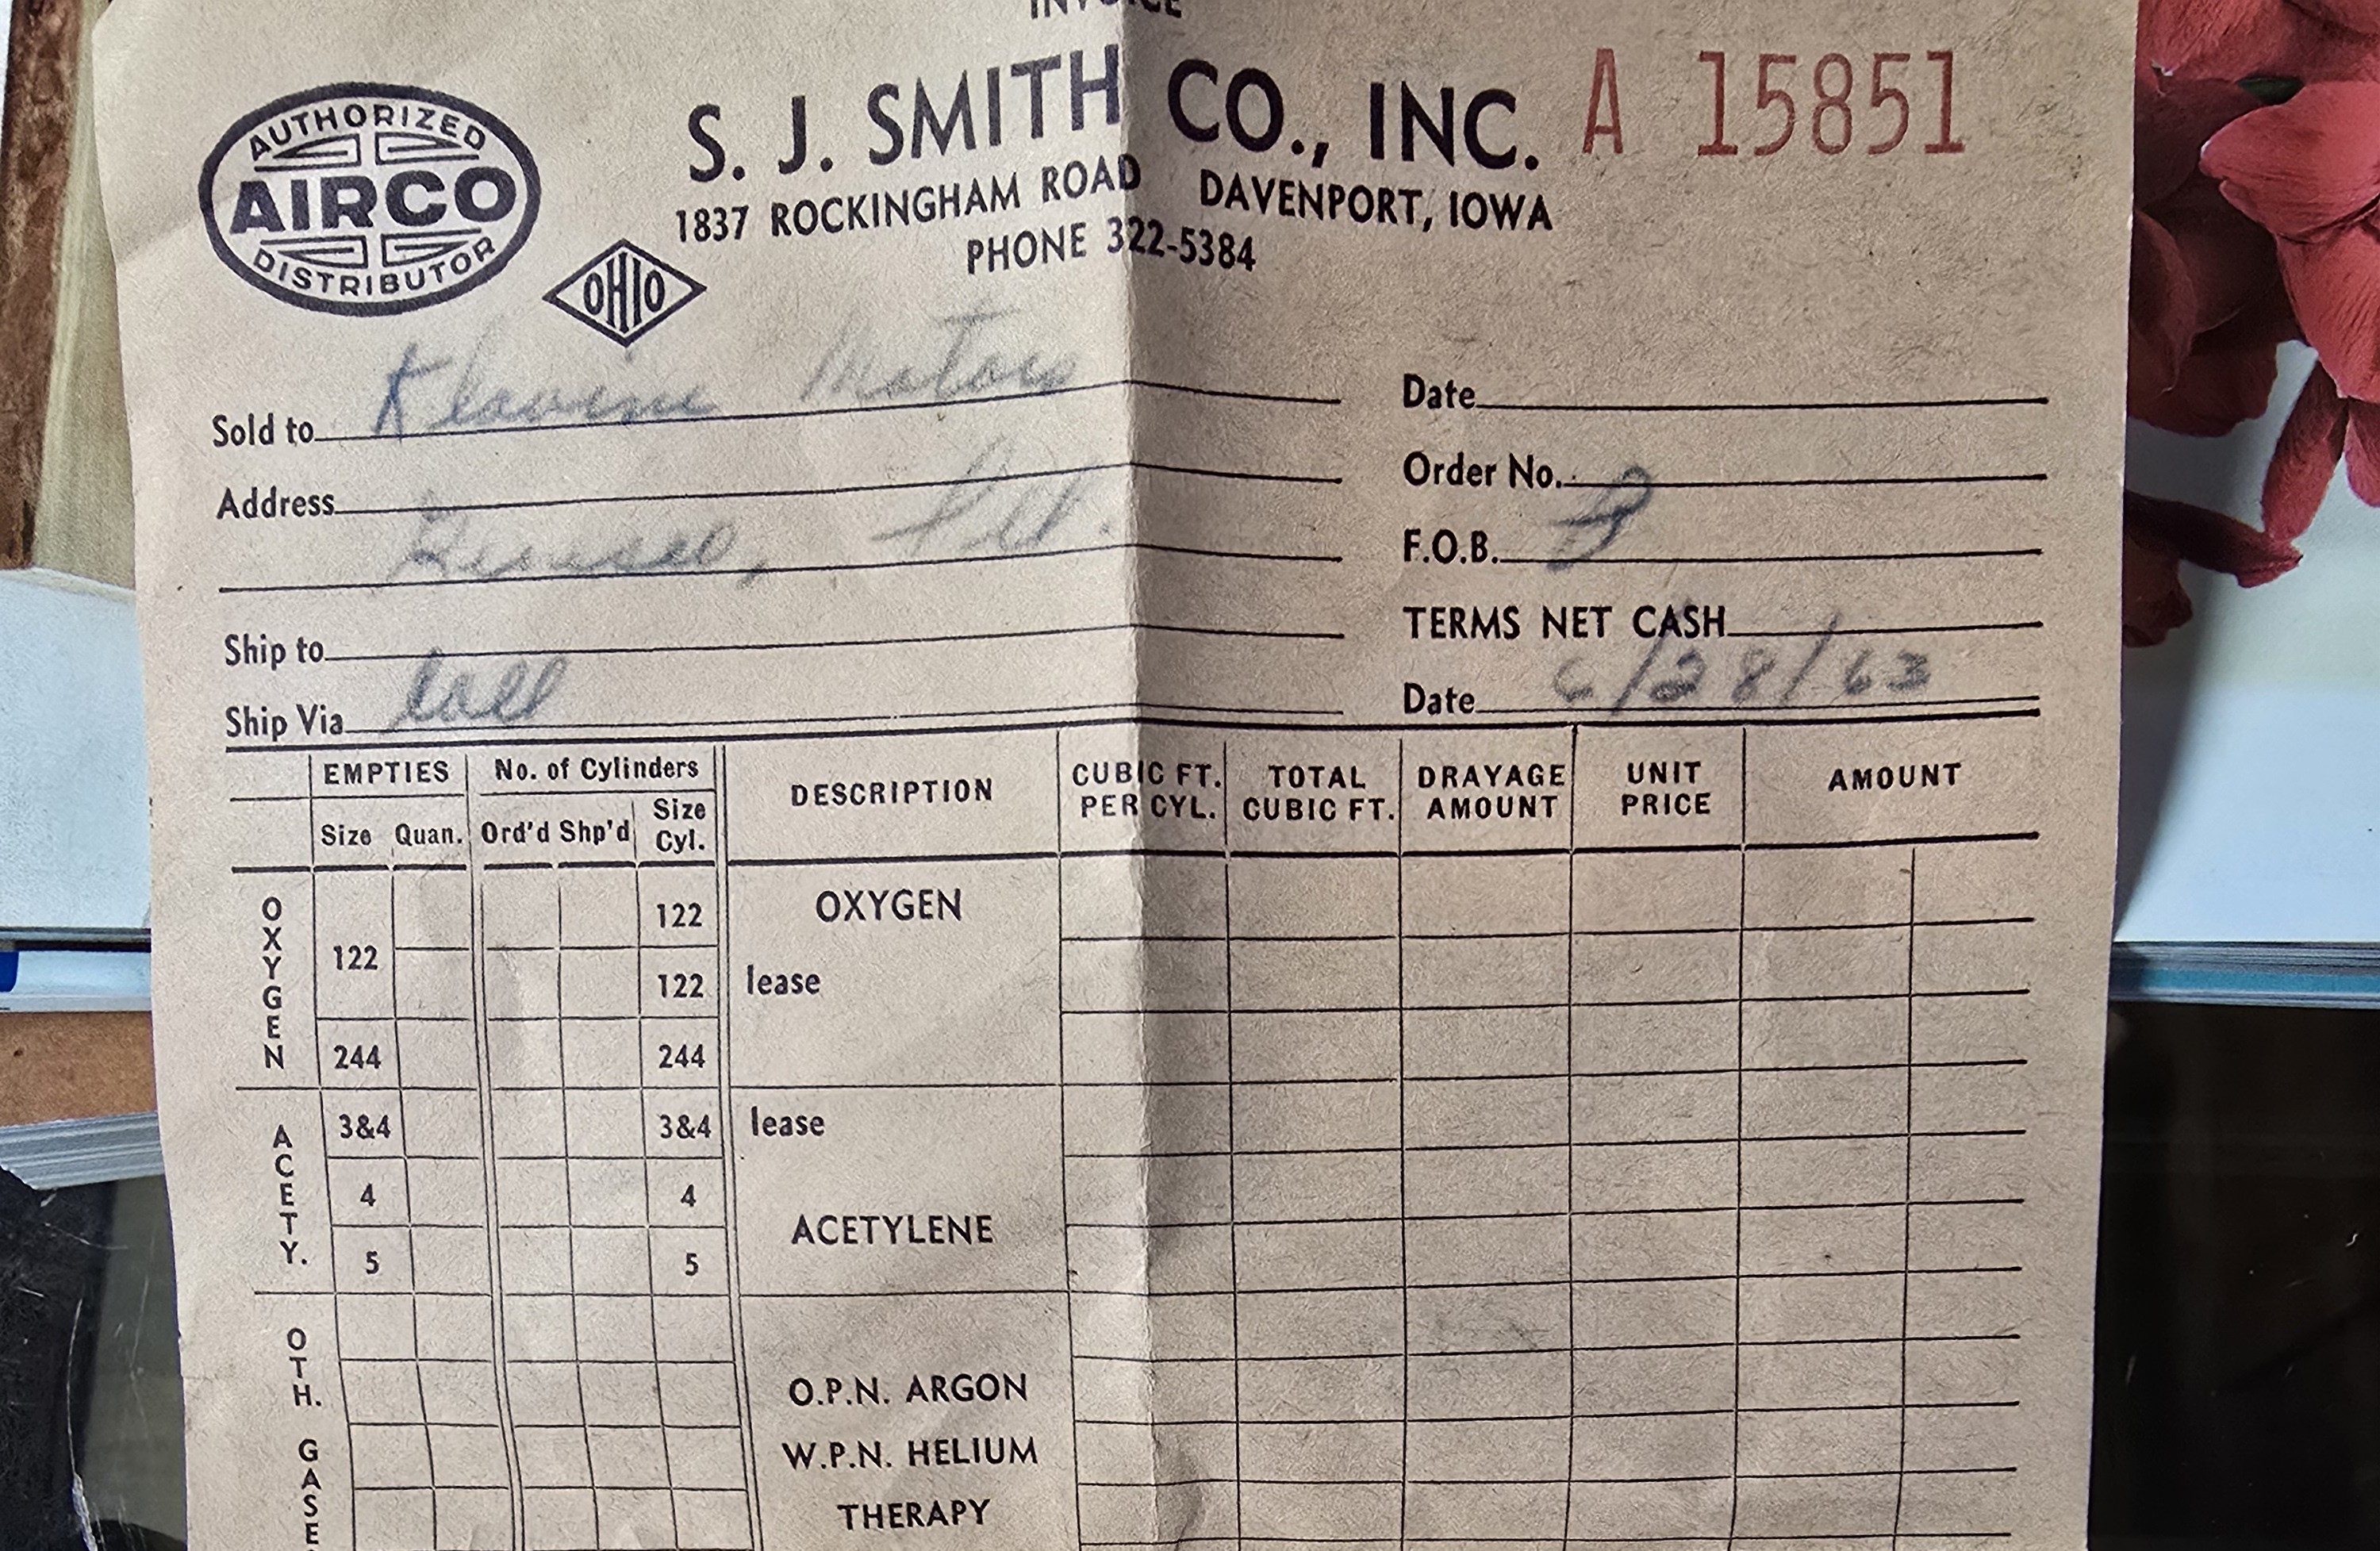 INVOICE
AUTHORIZED
AIRCO
DISTRIBUTOR
OHIO
S. J. SMITH CO., INC. A 15851
1837 ROCKINGHAM ROAD DAVENPORT, IOWA
PHONE 322-5384
Sold to Motors
Address
Geneseo, Ill.
Ship to
Ship Via Call
Date
Order No.
F.O.B.
TERMS NET CASH
Date 6/28/63
EMPTIES No. of Cylinders DESCRIPTION CUBIC FT. PER CYL. TOTAL CUBIC FT. DRAYAGE AMOUNT UNIT PRICE AMOUNT
Size Quan. Ord'd Shp'd Size Cyl.
OXYGEN
122 122 OXYGEN
122 lease
244 244
ACETY.
3&4 3&4 lease
4 4
ACETYLENE
5 5
OTH. GASE
O.P.N. ARGON
W.P.N. HELIUM
THERAPY